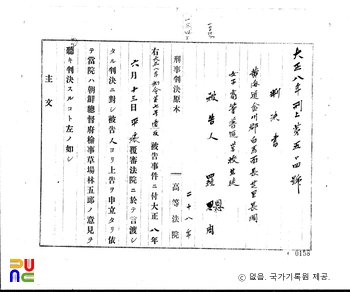 大正八年刑上第五四號
判決書
黃海道金川郡
女子高等普通學校生徒
被告人 羅恩周
二十八年
刑事判決原本 高等法院
右 被告事件ニ付大正八年
六月十三日平壤覆審法院ニ於テ言渡シ
タル判決ニ對シ被告人ヨリ上告ヲ申立タリ依
テ當院ハ朝鮮總督府檢事草場林五郎ノ意見ヲ
聽キ判決スルコト左ノ如シ
主文
0158
ⓒ 없음, 국가기록원 제공.